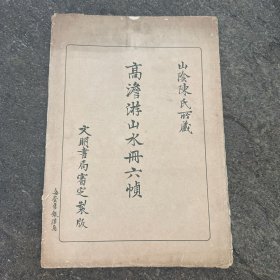 山陰陳氏所藏
高澹游山水冊六幀
文明書局審定製版